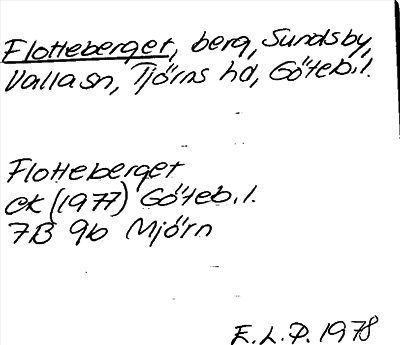 Flotteberget, berg, Sundsby,
Valla sn, Tjörns hd, Göteb.l.
Flotteberget
EK (1977) Göteb.l.
7B 9b Mjörn
E.L.P. 1978